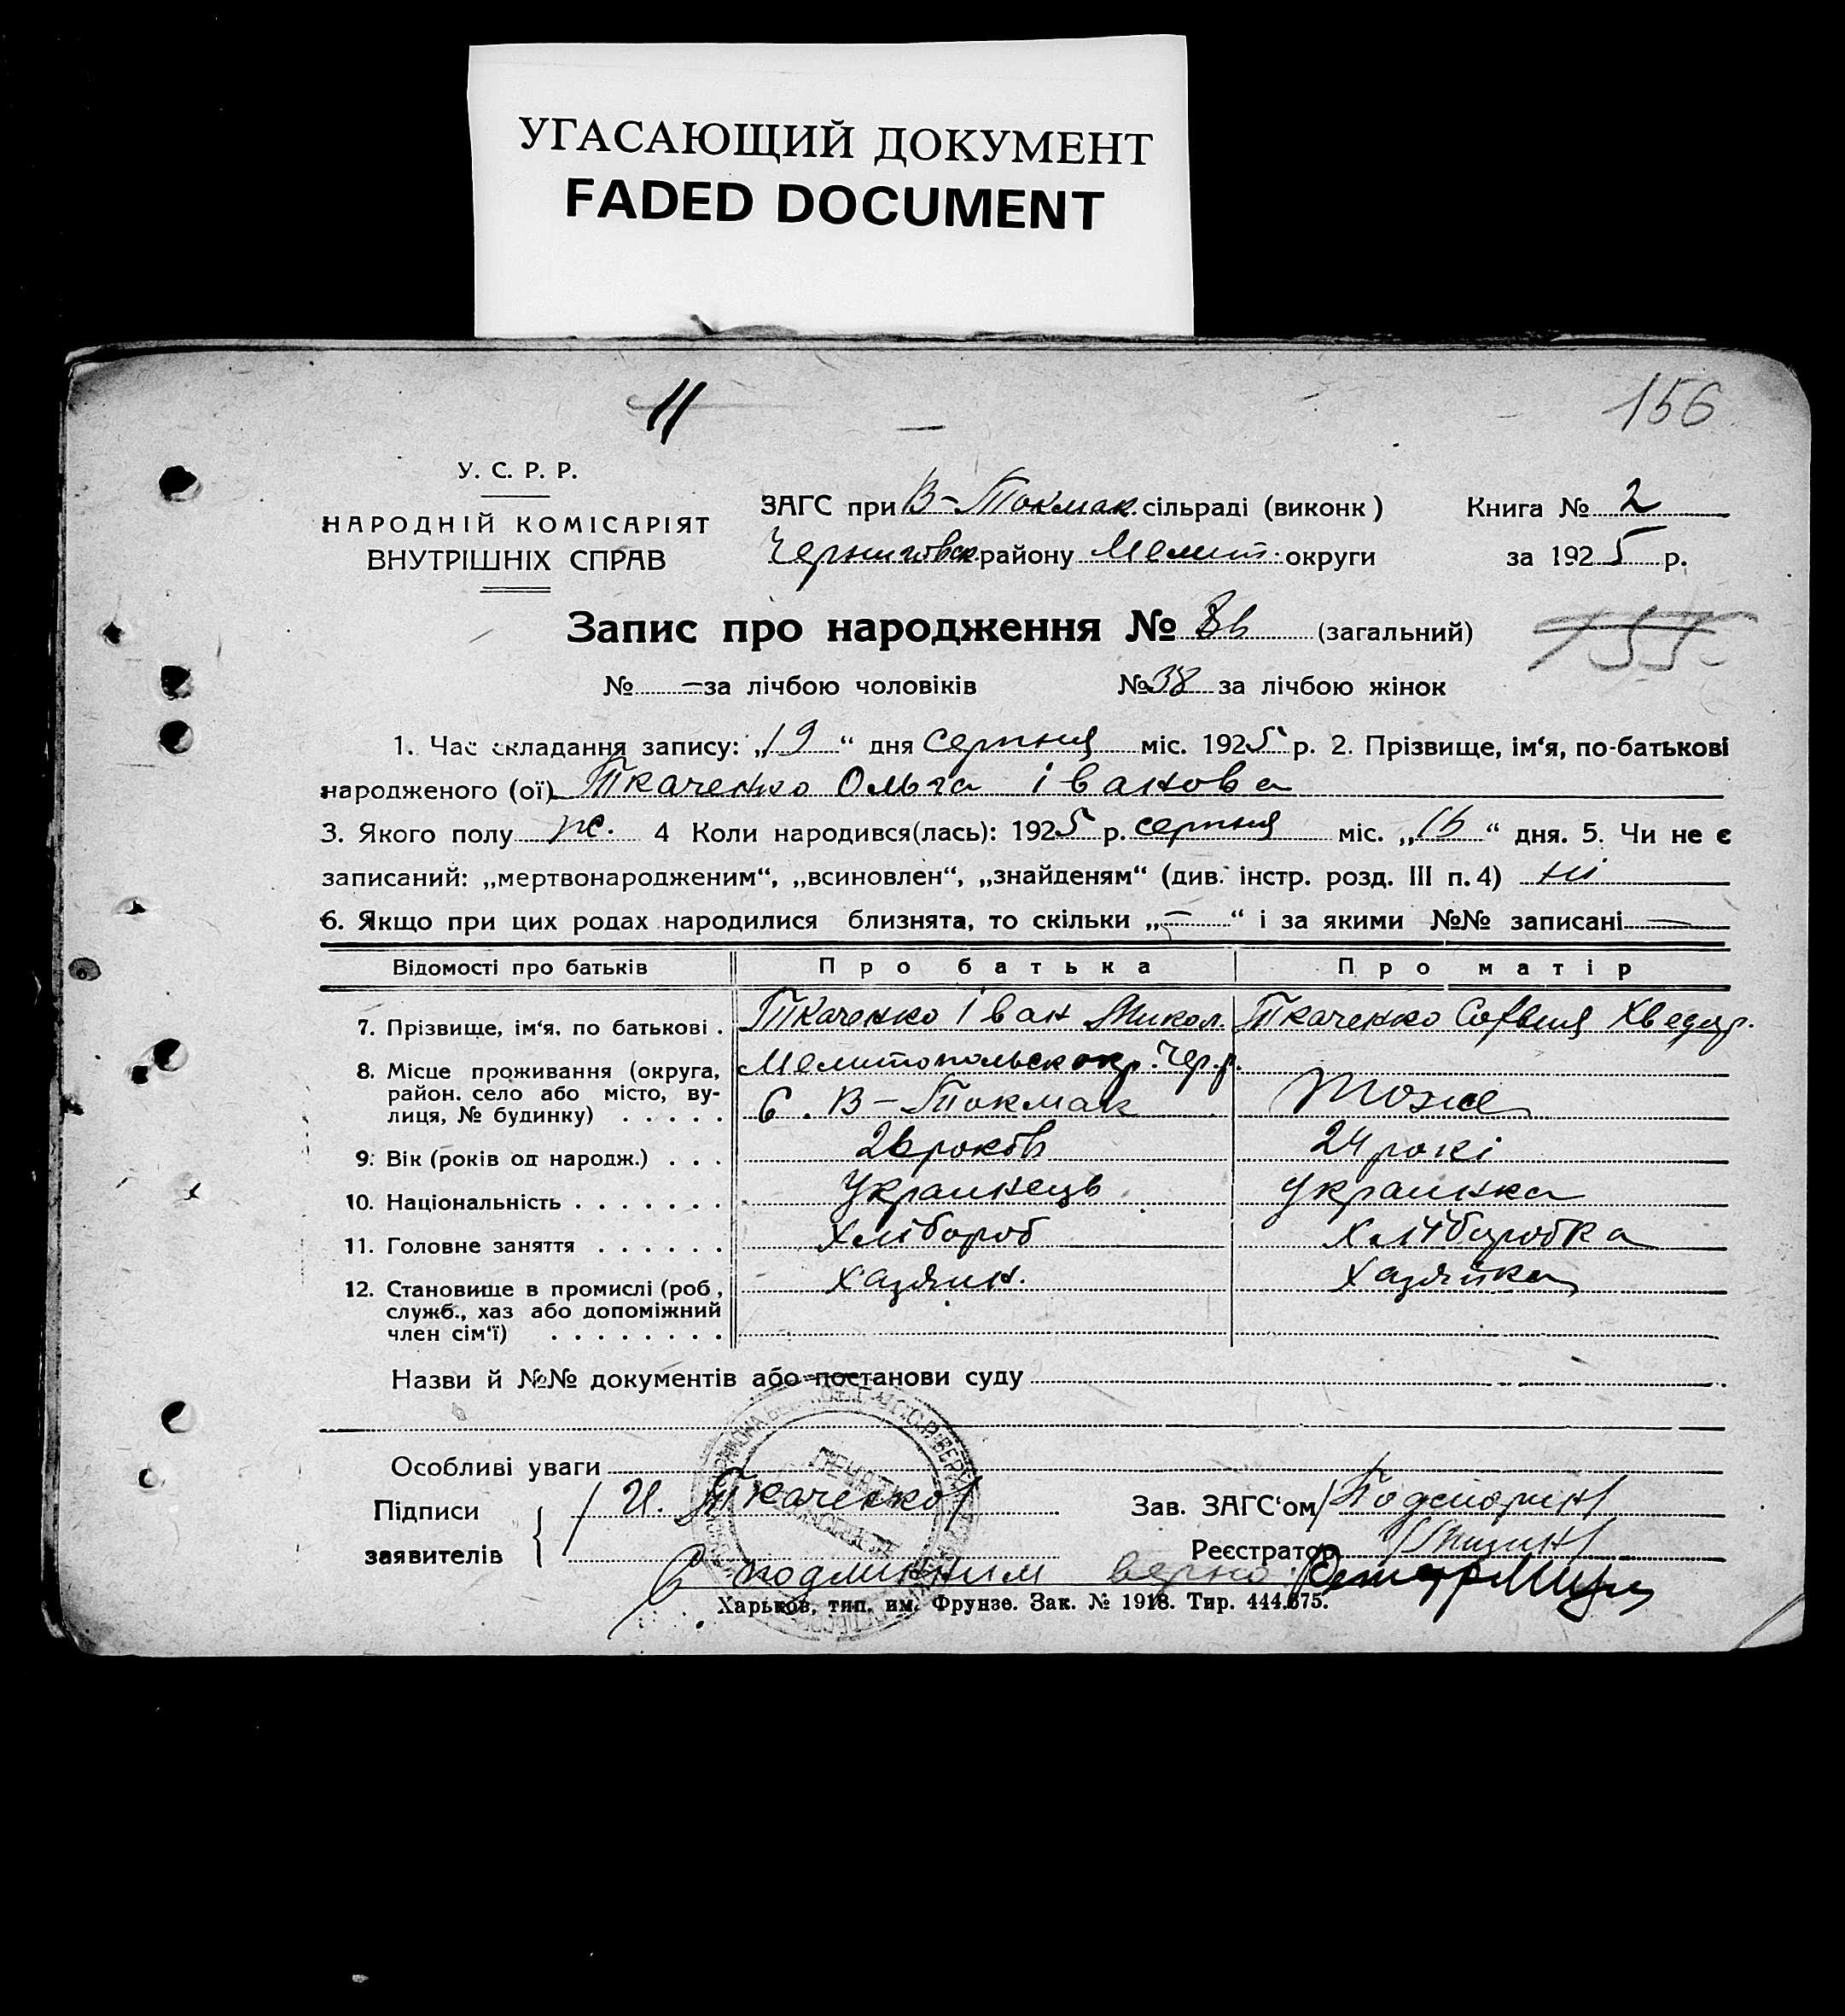 УГАСАЮЩИЙ ДОКУМЕНТ
FADED DOCUMENT
11
156
У. С. Р. Р.
НАРОДНІЙ КОМІСАРІЯТ
ВНУТРІШНІХ СПРАВ
ЗАГС при В-Токмак. сільраді (виконк)
Черниговск. району Мелит. округи
Книга № 2
за 1925 р.
Запис про народження № 86 (загальний)
155
№ — за лічбою чоловіків № 38 за лічбою жінок
1. Час складання запису: „19“ дня серпня міс. 1925 р. 2. Прізвище, ім‘я, по-батькові
народженого (ої) Ткаченко Ольга івановa
3. Якого полу ж. 4 Коли народився(лась): 1925 р. серпня міс. „16“ дня. 5. Чи не є
записаний: „мертвонародженим“, „всиновлен“, „знайденям“ (див. інстр. розд. III п. 4) ні
6. Якщо при цих родах народилися близнята, то скільки „—“ і за якими №№ записані —
Відомості про батьків Про батька Про матір
7. Прізвище, ім‘я, по батькові . Ткаченко Іван Микол. Ткаченко Софвия Хведор.
8. Місце проживання (округа, Мелитопольск окр. Чер. р.
район. село або місто, ву- с. В-Токмак тоже
лиця, № будинку) . . . . .
9. Вік (років од народж.) . . . 26 роков 24 рокі
10. Національність . . . . . . . Украинець Украинка
11. Головне заняття . . . . . . Хлібороб Хліборобка
12. Становище в промислі (роб, Хазяин. Хазяйка
служб., хаз або допоміжний
член сім‘ї) . . . . . . . .
Назви й №№ документів або постанови суду
Особливі уваги
Підписи
заявителів
/ И. Ткаченко /
Зав. ЗАГС‘ом
Реєстратор
С подлинним верно:
Харьков, тип. им. Фрунзе. Зак. № 1918. Тир. 444.675.